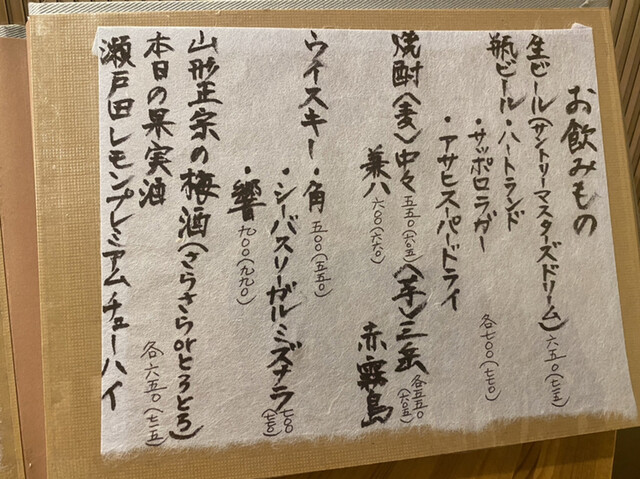 お飲みもの
生ビール(サントリーマスターズドリーム)六五〇(七一五)
瓶ビール・ハートランド
・サッポロラガー 各七〇〇(七七〇)
・アサヒスーパードライ
焼酎〈麦〉中々 五五〇(六〇五)〈芋〉三岳 各五五〇(六〇五)
兼八 六〇〇(六六〇) 赤霧島
ウイスキー・角 五〇〇(五五〇)
・シーバスリーガルミズナラ 七〇〇(七七〇)
・響 九〇〇(九九〇)
山形正宗の梅酒(さらさらorとろとろ)
本日の果実酒 各六五〇(七一五)
瀬戸田レモンプレミアムチューハイ